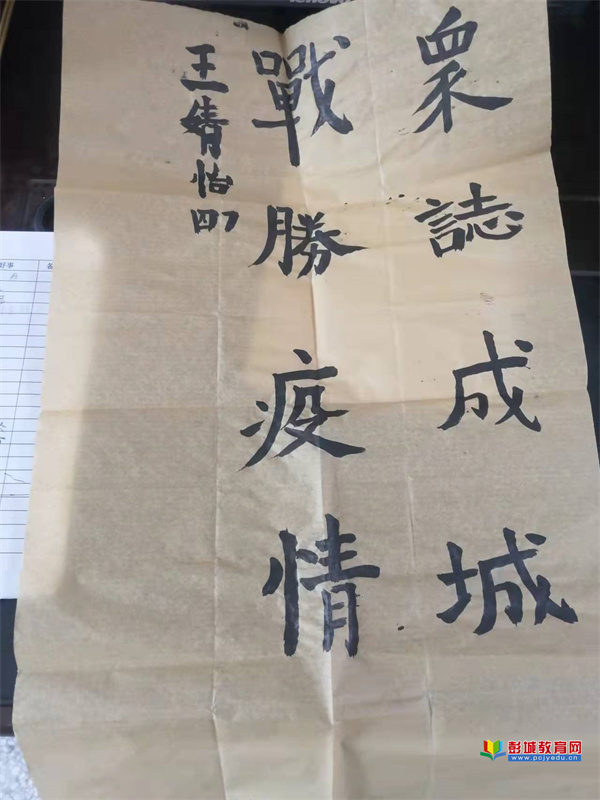 眾誌成城
戰勝疫情
王婧怡
四7
好事
彭城教育网
www.pcjyedu.cn